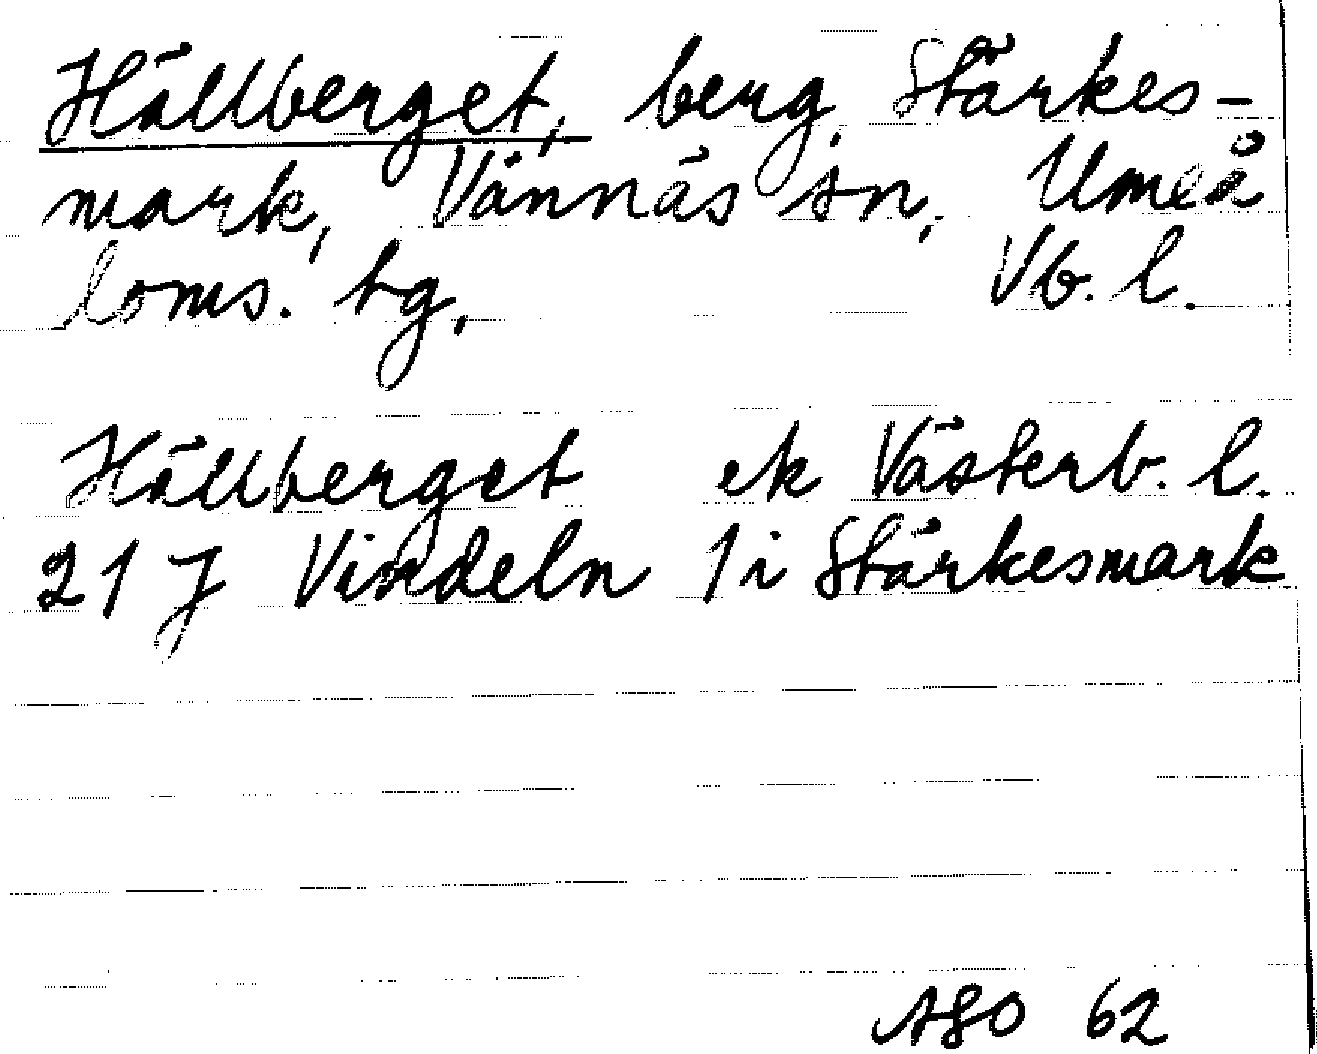 Hällberget, berg, Stärkes-
mark, Vännäs sn, Umeå
loms. tg, Vb. l.
Hällberget ek Västerb. l.
21 J Vindeln 1 i Stärkesmark
ASO 62